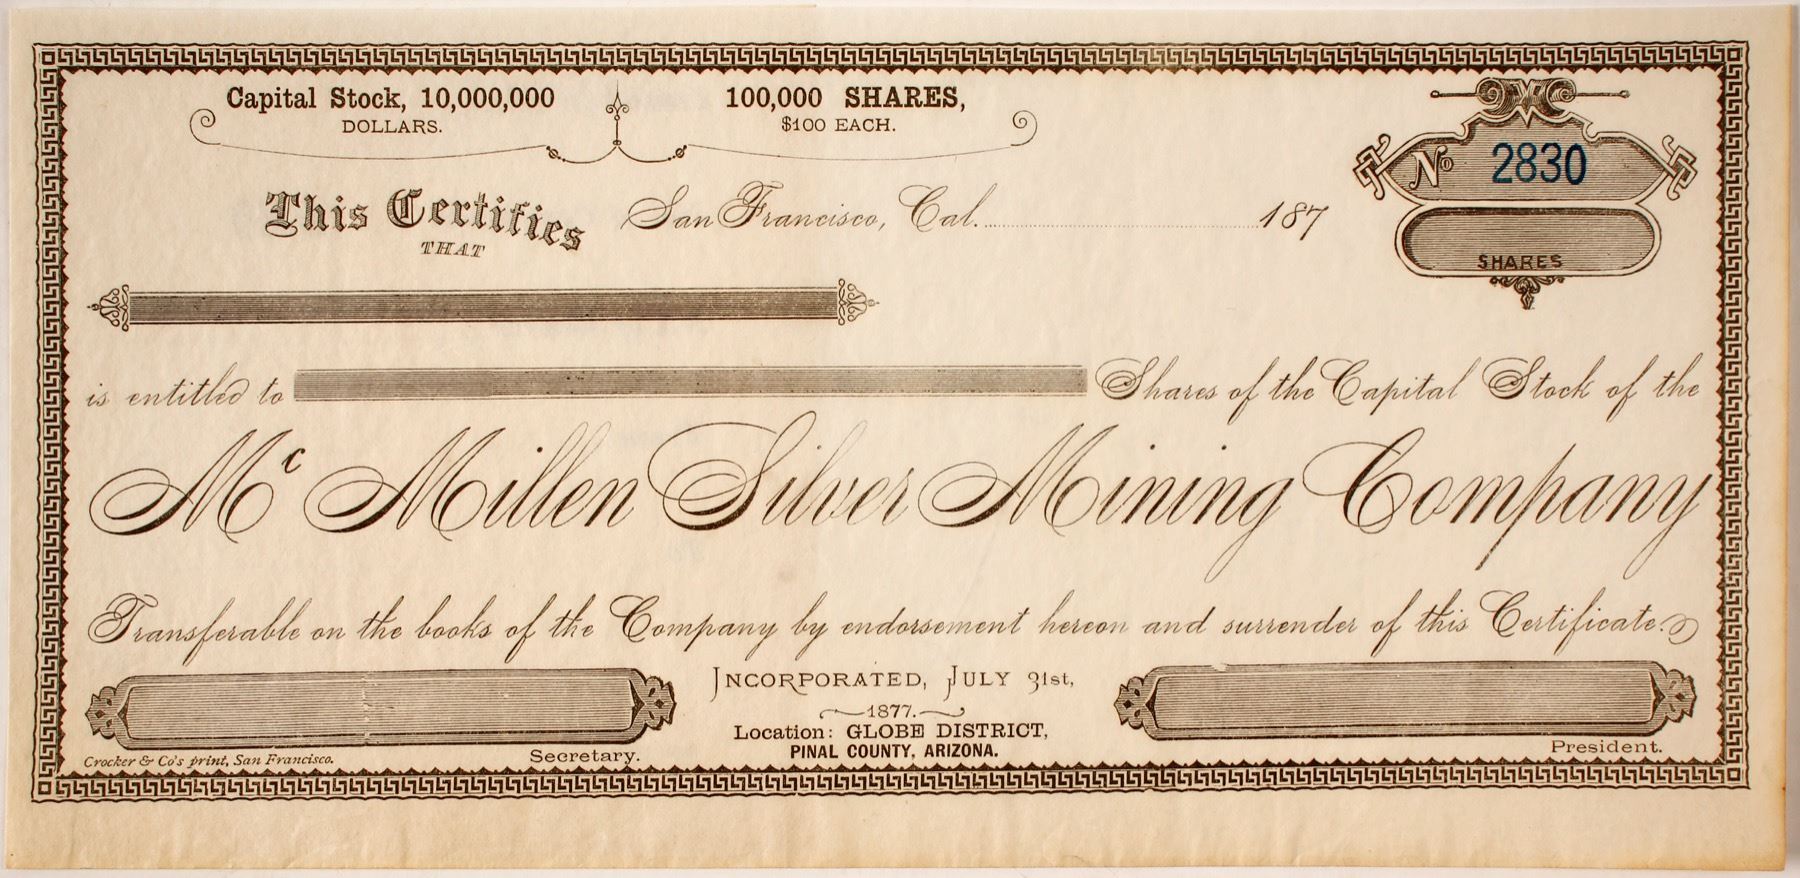 Capital Stock, 10,000,000
DOLLARS.
100,000 SHARES,
$100 EACH.
No 2830
SHARES
This Certifies
THAT
San Francisco, Cal. 187
is entitled to Shares of the Capital Stock of the
Mc Millen Silver Mining Company
Transferable on the books of the Company by endorsement hereon and surrender of this Certificate.
INCORPORATED, JULY 31st,
1877.
Location: GLOBE DISTRICT,
PINAL COUNTY, ARIZONA.
Secretary.
President.
Crocker & Co's print, San Francisco.